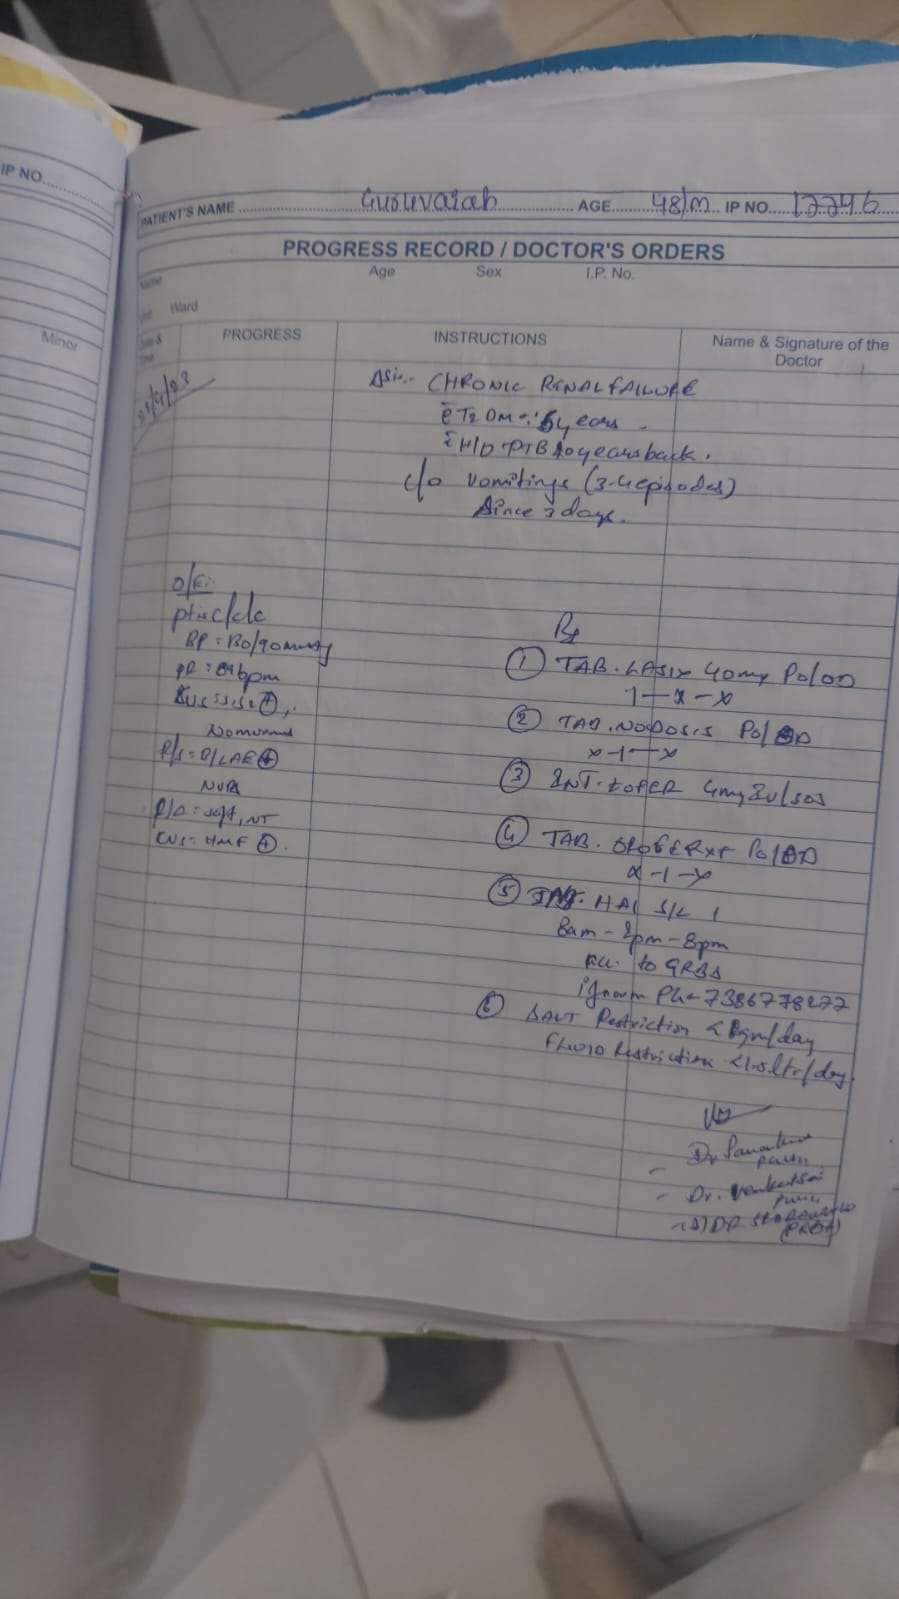 IP NO.
Minor
PATIENT'S NAME AGE 48/M IP NO. 17746
PROGRESS RECORD / DOCTOR'S ORDERS
Name Age Sex I.P. No.
Unit Ward
Date & Time PROGRESS INSTRUCTIONS Name & Signature of the Doctor
CHRONIC RENAL FAILURE
c̄ T2 DM years
H/O PTB years back.
c/o vomitings (3-4 episodes)
Since 3 days.
O/E:
pt is c/c/c
BP = 130/90 mmHg
PR = 84 bpm
CVS: S1S2 ⊕,
No murmur
R/S = B/L AE ⊕
NVBS
P/A = soft, NT
CNS = HMF ⊕.
Rx
① TAB. LASIX 40mg PO/OD
1 - x - x
② TAB. NODOSIS PO/OD
x - 1 - x
③ INJ. ZOFER 4mg IV/SOS
④ TAB. OROFER XT PO/OD
x - 1 - x
⑤ INJ. HAI S/C
8am - 2pm - 8pm
acc. to GRBS
inform Ph - 7386778277
⑥ SALT Restriction < 2gm/day
FLUID Restriction < 1.5 ltr/day
Dr.
Dr. Venkat Sai
DR.